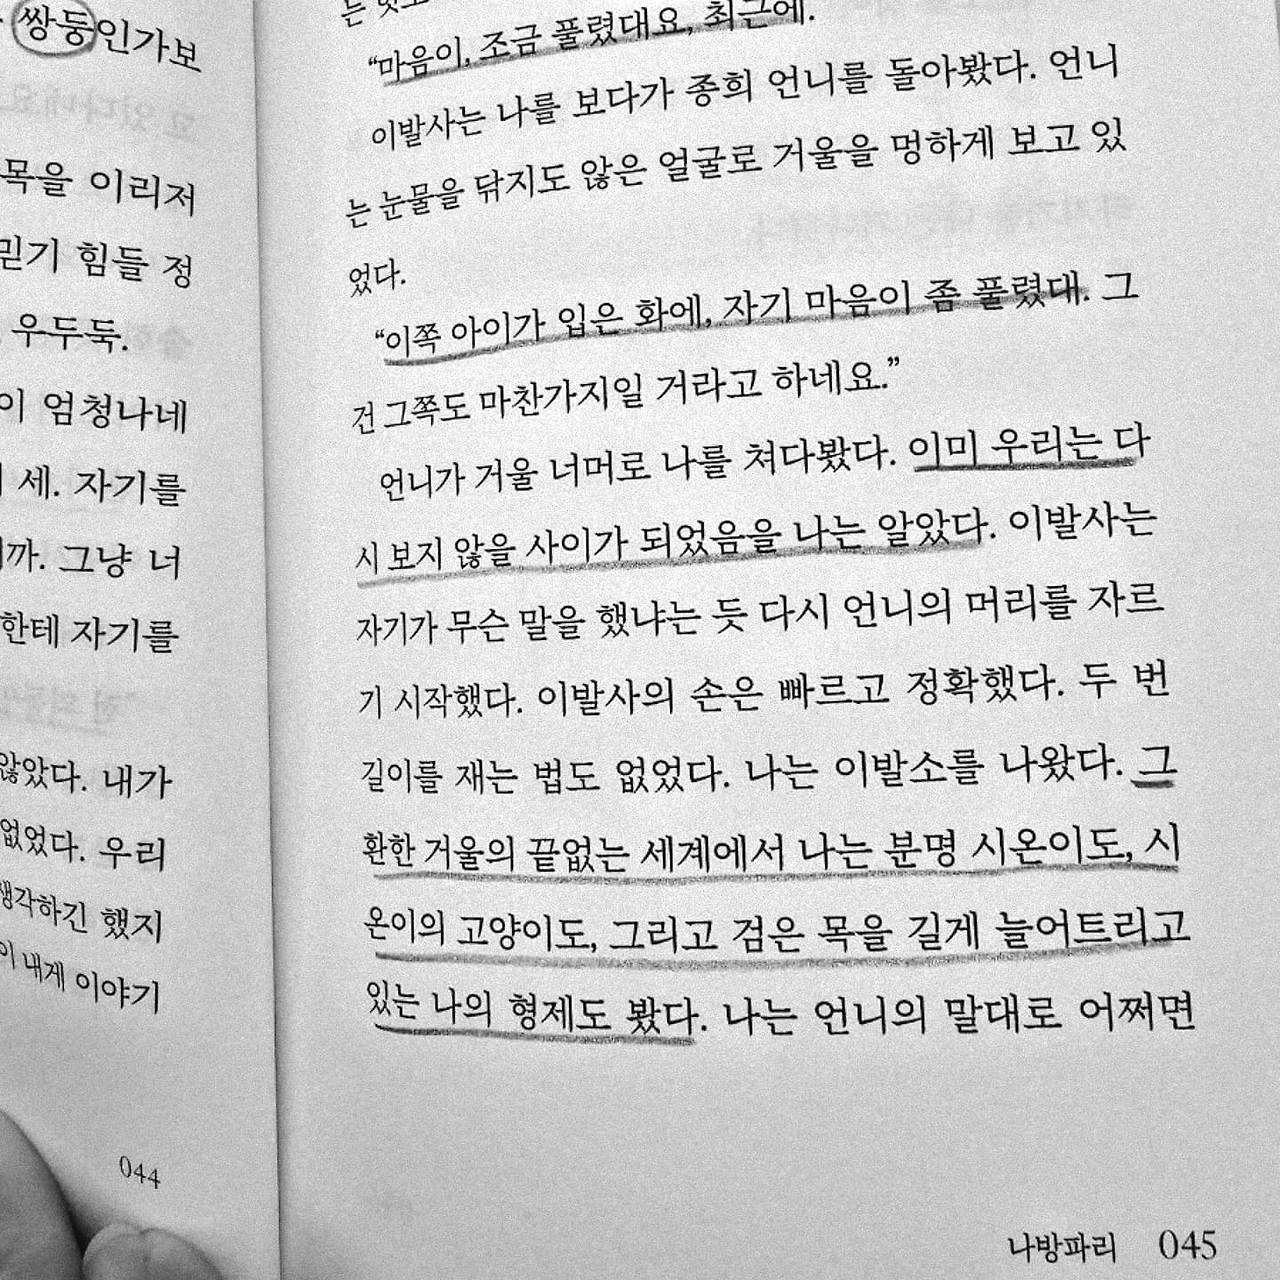 쌍둥인가보
목을 이리저
믿기 힘들 정
우두둑.
이 엄청나네
세. 자기를
까. 그냥 너
한테 자기를
않았다. 내가
없었다. 우리
생각하긴 했지
이 내게 이야기
044
“마음이, 조금 풀렸대요, 최근에.
이발사는 나를 보다가 종희 언니를 돌아봤다. 언니
는 눈물을 닦지도 않은 얼굴로 거울을 멍하게 보고 있
었다.
“이쪽 아이가 입은 화에, 자기 마음이 좀 풀렸대. 그
건 그쪽도 마찬가지일 거라고 하네요.”
언니가 거울 너머로 나를 쳐다봤다. 이미 우리는 다
시 보지 않을 사이가 되었음을 나는 알았다. 이발사는
자기가 무슨 말을 했냐는 듯 다시 언니의 머리를 자르
기 시작했다. 이발사의 손은 빠르고 정확했다. 두 번
길이를 재는 법도 없었다. 나는 이발소를 나왔다. 그
환한 거울의 끝없는 세계에서 나는 분명 시온이도, 시
온이의 고양이도, 그리고 검은 목을 길게 늘어트리고
있는 나의 형제도 봤다. 나는 언니의 말대로 어쩌면
나방파리 045